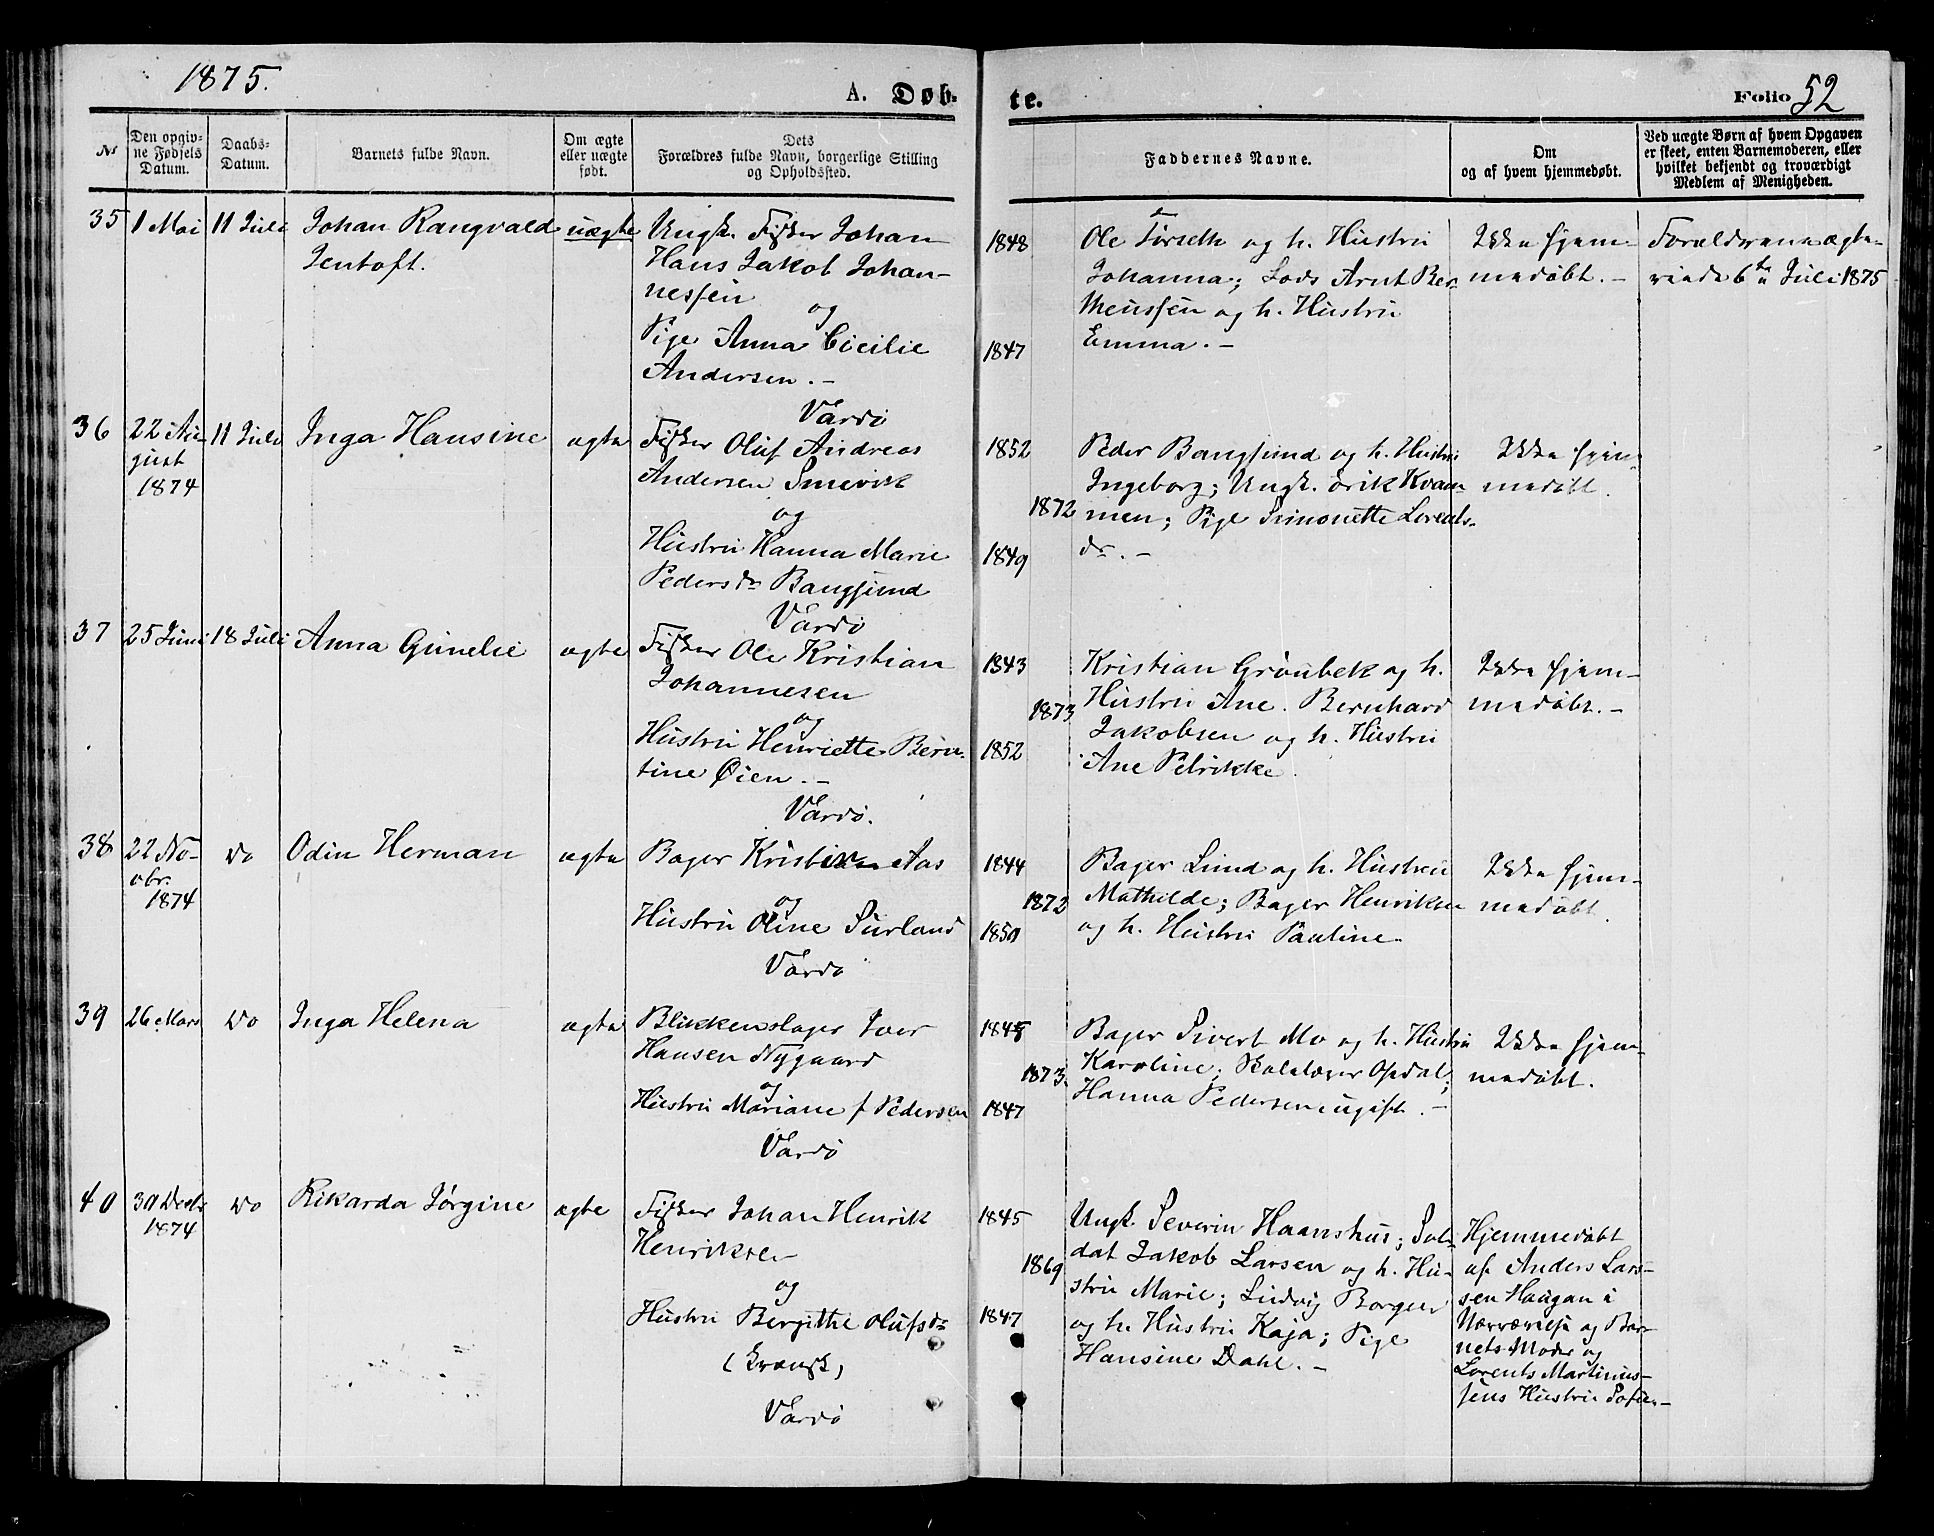 1875.
A. Døb-
te.
Folio 52
No
Den opgiv-
ne Fødsels
Datum.
Daabs-
Datum.
Barnets fulde Navn.
Om ægte
eller uægte
født.
Dets
Forældres fulde Navn, borgerlige Stilling
og Opholdssted.
Faddernes Navne.
Om
og af hvem hjemmedøbt.
Ved uægte Børn af hvem Opgaven
er skeet, enten Barnemoderen, eller
hvilket bekjendt og troværdigt
Medlem af Menigheden.
35
1 Mai
11 Juli
Johan Rangvald
Jentoft.
uægte
Ungk. Fisker Johan
Hans Jakob Johan-
nessen
og
Pige Anna Cicilie
Andersen. -
Vardø
1848
1847
Ole Torseth og h. Hustru
Johanna; Lods Arnt Ber-
theussen og h. Hustru
Emma. -
Ikke hjem-
medøbt. -
Forældrene ægte-
viede 6te Juli 1875
36
22 Au-
gust
1874
11 Juli
Inga Hansine
ægte
Fisker Oluf Andreas
Andersen Smevik
og
Hustru Hanna Marie
Pedersdr Bangsund
Vardø
1852
1872
1849
Peder Bangsund og h. Hustru
Ingeborg; Ungk. Erik Kvam-
men; Pige Simonette Lorents-
dr. -
Ikke hjem-
medøbt.
37
25 Juni
18 Juli
Anna Gunelie
ægte
Fisker Ole Kristian
Johannesen
og
Hustru Henriette Bern-
tine Øien. -
Vardø.
1843
1873
1852
Kristian Grønbek og h.
Hustru Ane. Bernhard
Jakobsen og h. Hustru
Ane Petrikke.
Ikke hjem-
medøbt. -
38
22 No-
vbr.
1874
do
Odin Herman
ægte
Bager Kristian Aas
og
Hustru Oline Surland
Vardø
1844
1872
1850
Bager Lund og h. Hustru
Mathilde; Bager Henriksen
og h. Hustru Pauline.
Ikke hjem-
medøbt.
39
26 Mars
do
Inga Helena
ægte
Blikkenslager Iver
Hansen Nygaard
og
Hustru Mariane f Pedersen
Vardø
1848
1873.
1847
Bager Sivert Mo og h. Hustru
Karoline; Skolelærer Opdal;
Hanna Pedersen ugift. -
Ikke hjem-
medøbt.
40
30 Decbr
1874
do
Rikarda Jørgine
ægte
Fisker Johan Henrik
Henriksen
og
Hustru Bergithe Olufsdr
(kvænsk)
Vardø
1845
1869
1847
Ungk. Severin Haanshus; Sol-
dat Jakob Larsen og h. Hu-
stru Marie; Ludvig Borgen
og h. Hustru Kaja; Pige
Hansine Dahl. -
Hjemmedøbt
af Anders Lars-
sen Haugan i
Nærværelse og Bar-
nets Moder og
Lorents Martinus-
sens Hustru Sofie. -